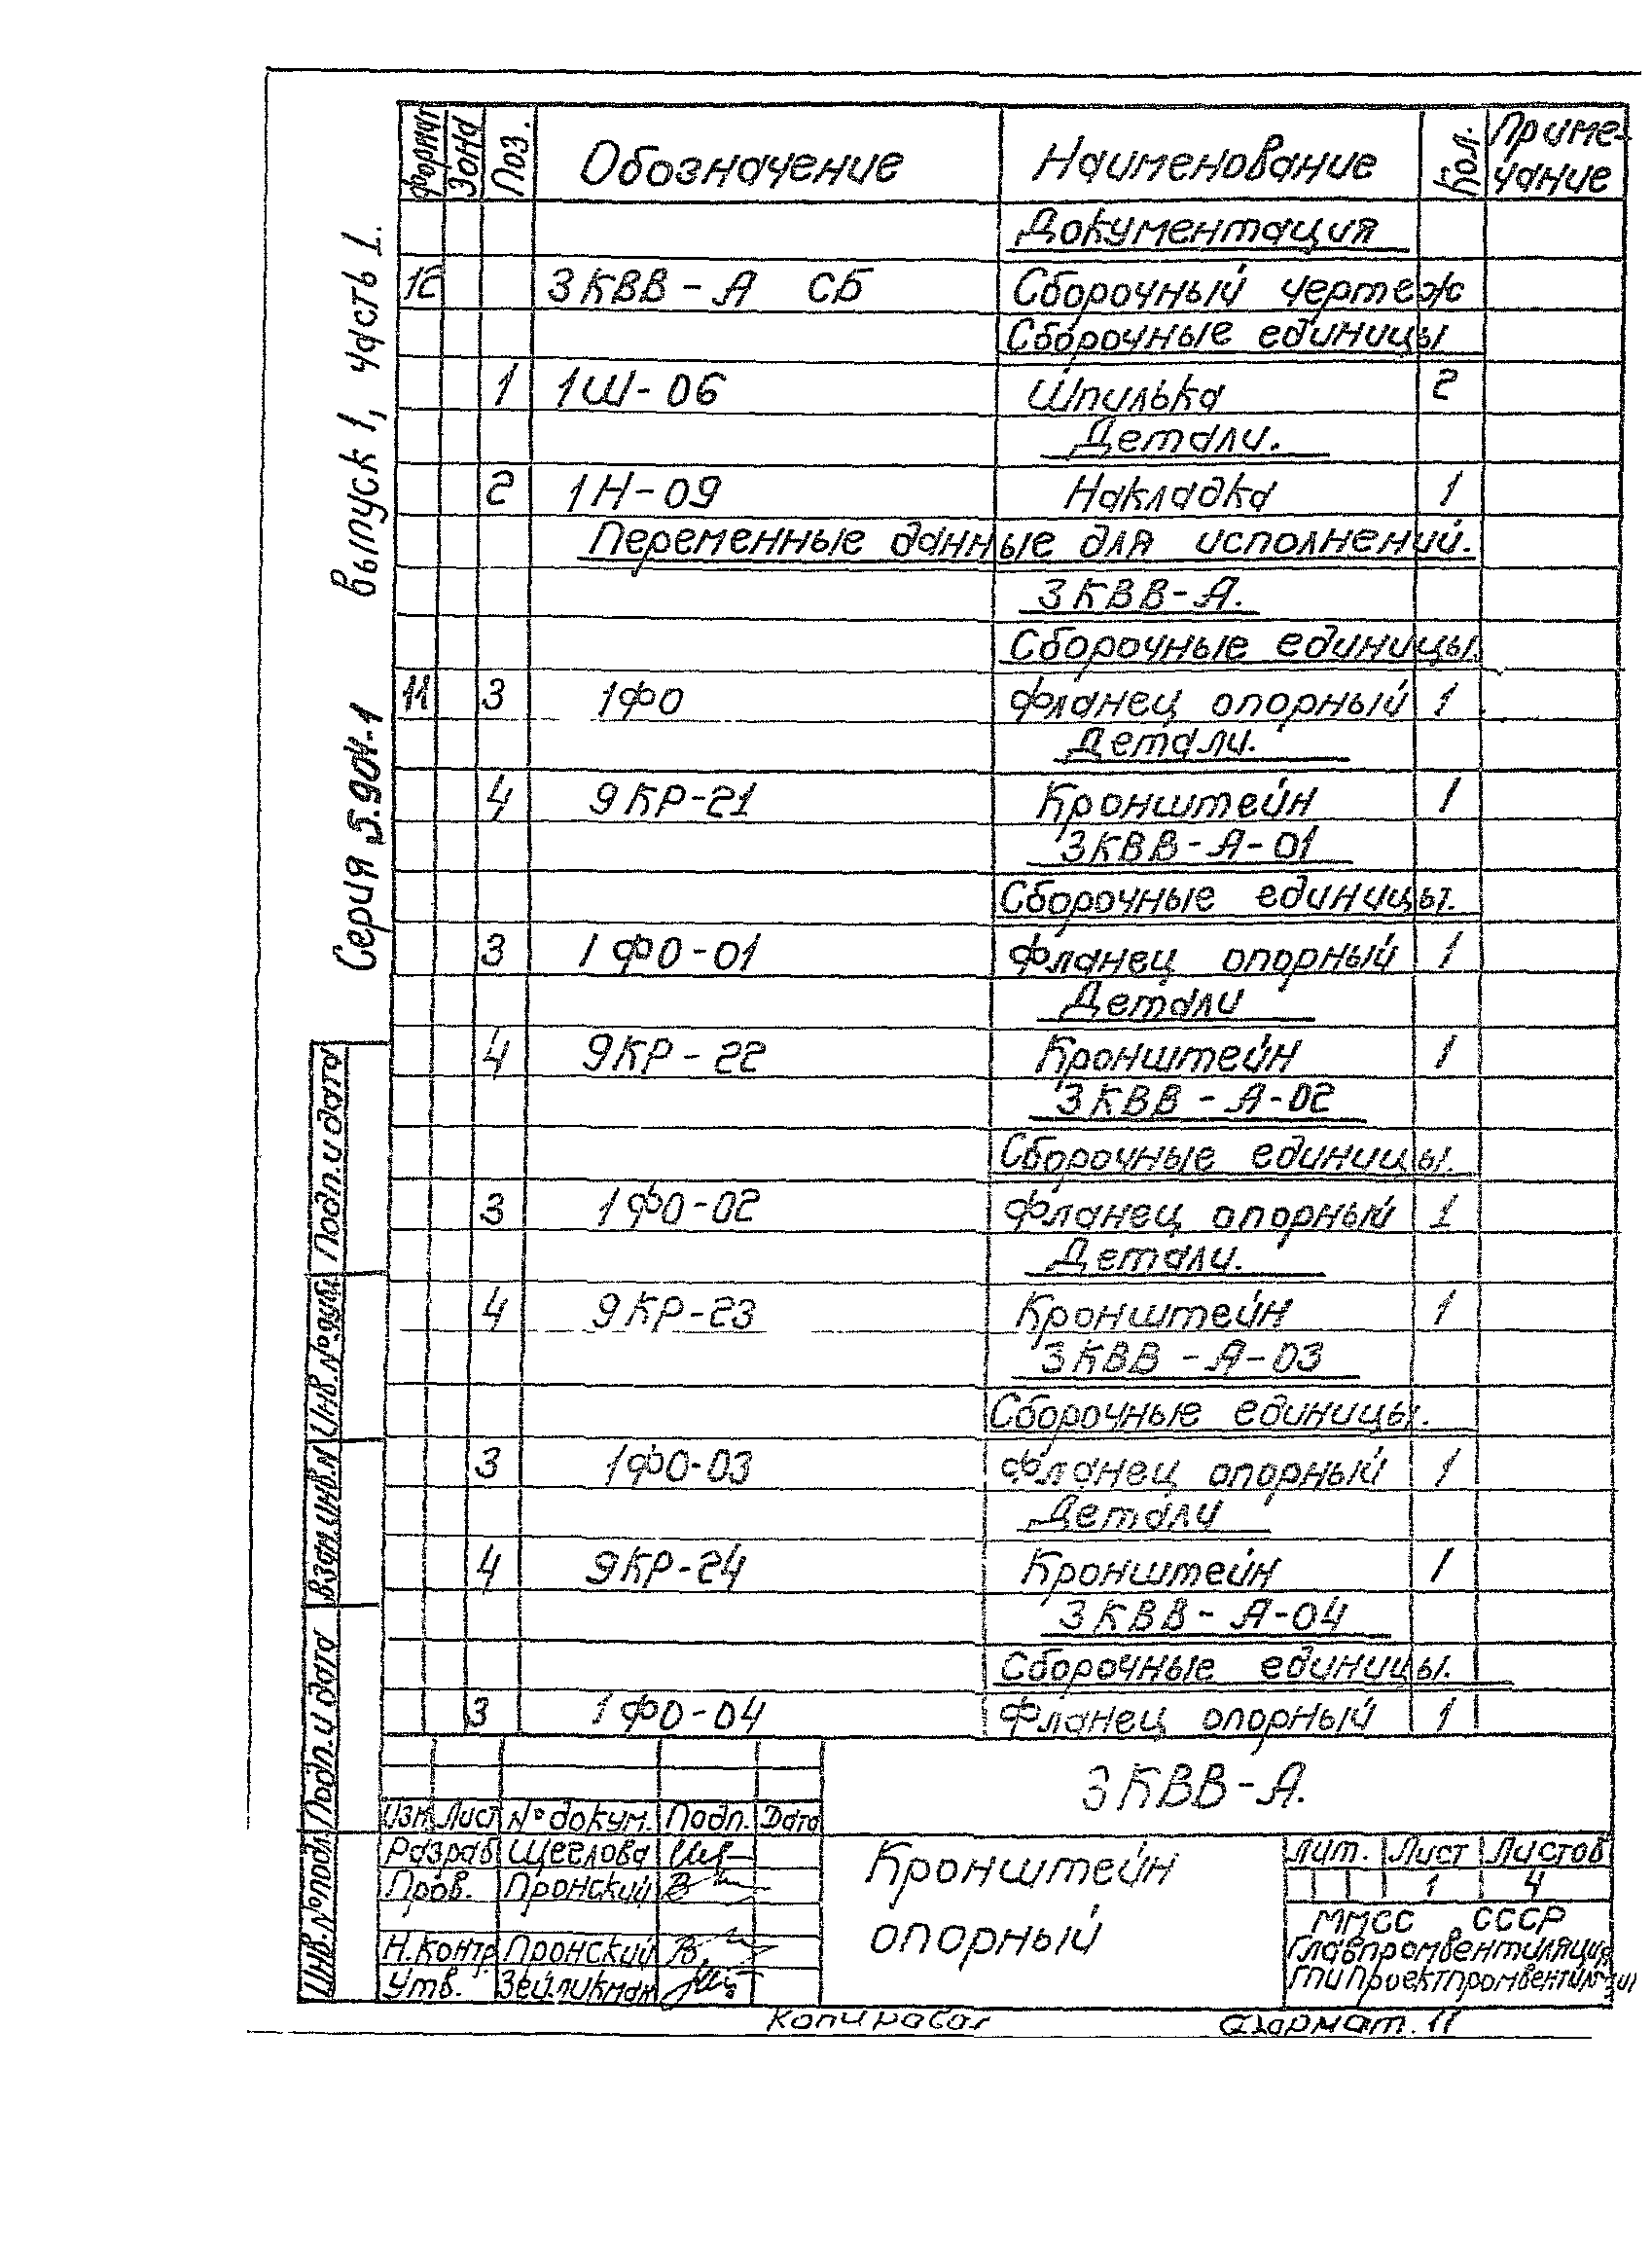 Серия 5.904-1 Выпуск 1, часть 1.
Формат Зона Поз. Обозначение Наименование Кол. Приме-
чание
Документация
12 3КВВ-А СБ Сборочный чертеж
Сборочные единицы
1 1Ш-06 Шпилька 2
Детали.
2 1Н-09 Накладка 1
Переменные данные для исполнений.
3КВВ-А.
Сборочные единицы.
11 3 1ФО Фланец опорный 1
Детали.
4 9КР-21 Кронштейн 1
3КВВ-А-01
Сборочные единицы.
3 1ФО-01 Фланец опорный 1
Детали
4 9КР-22 Кронштейн 1
3КВВ-А-02
Сборочные единицы.
3 1ФО-02 Фланец опорный 1
Детали.
4 9КР-23 Кронштейн 1
3КВВ-А-03
Сборочные единицы.
3 1ФО-03 Фланец опорный 1
Детали
4 9КР-24 Кронштейн 1
3КВВ-А-04
Сборочные единицы.
3 1ФО-04 Фланец опорный 1
Подп. и дата
Инв.№дубл.
Взам.инв.№
Подп. и дата
Инв.№подл.
3КВВ-А.
Изм. Лист № докум. Подп. Дата
Разраб. Щеглова
Пров. Пронский
Н.контр. Пронский
Утв. Зейликман
Кронштейн
опорный
Лит. Лист Листов
1 4
ММСС СССР
Главпромвентиляция
ГПИ Проектпромвентиляция
Копировал Формат. 11